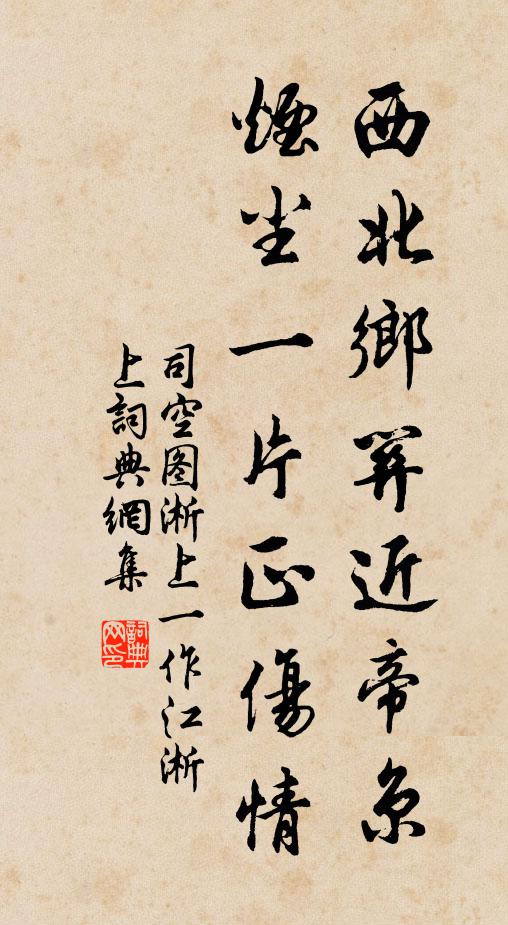 西北鄉關近帝京
煙尘一片正傷情
司空图淅上一作江淅
上詞典網集
詞典网印